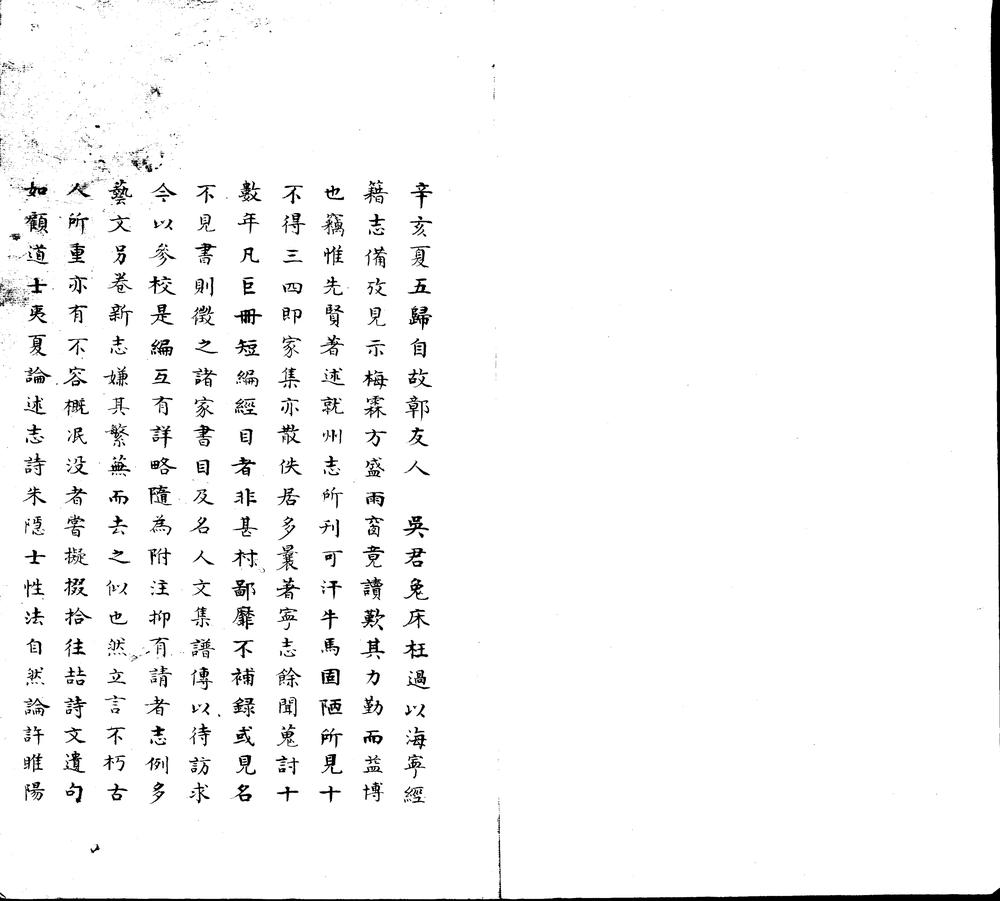 辛亥夏五歸自故鄣友人 吳君兔床枉過以海寧經
籍志備攷見示梅霖方盛雨窗竟讀歎其力勤而益博
也竊惟先賢著述就州志所刊可汗牛馬固陋所見十
不得三四即家集亦散佚居多曩著寧志餘聞蒐討十
數年凡巨冊短編經目者非甚村鄙靡不補錄或見名
不見書則徵之諸家書目及名人文集譜傳以待訪求
今以參校是編互有詳略隨為附注抑有請者志例多
藝文另卷新志嫌其繁蕪而去之似也然立言不朽古
人所重亦有不容概泯没者嘗擬掇拾往喆詩文遺句
如顧道士夷夏論述志詩朱隱士性法自然論許睢陽